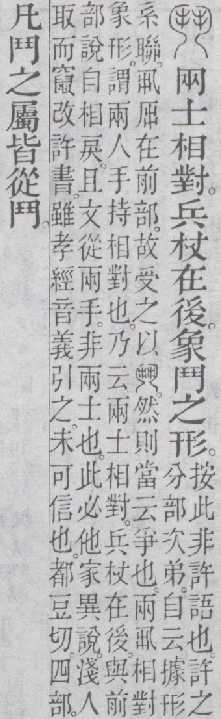 鬥 兩士相對。兵杖在後。象鬥之形。
按此非許語也。許之
分部次弟。自云據形
系聯。丮屈在前部。故受之以鬥。然則當云爭也。兩丮相對
象形。謂兩人手持相對也。乃云兩士相對。兵杖在後。與前
部說自相戾。且文從兩手。非兩士也。此必他家異說。淺人
取而竄改許書。雖孝經音義引之。未可信也。都豆切。四部。
凡鬥之屬皆從鬥。